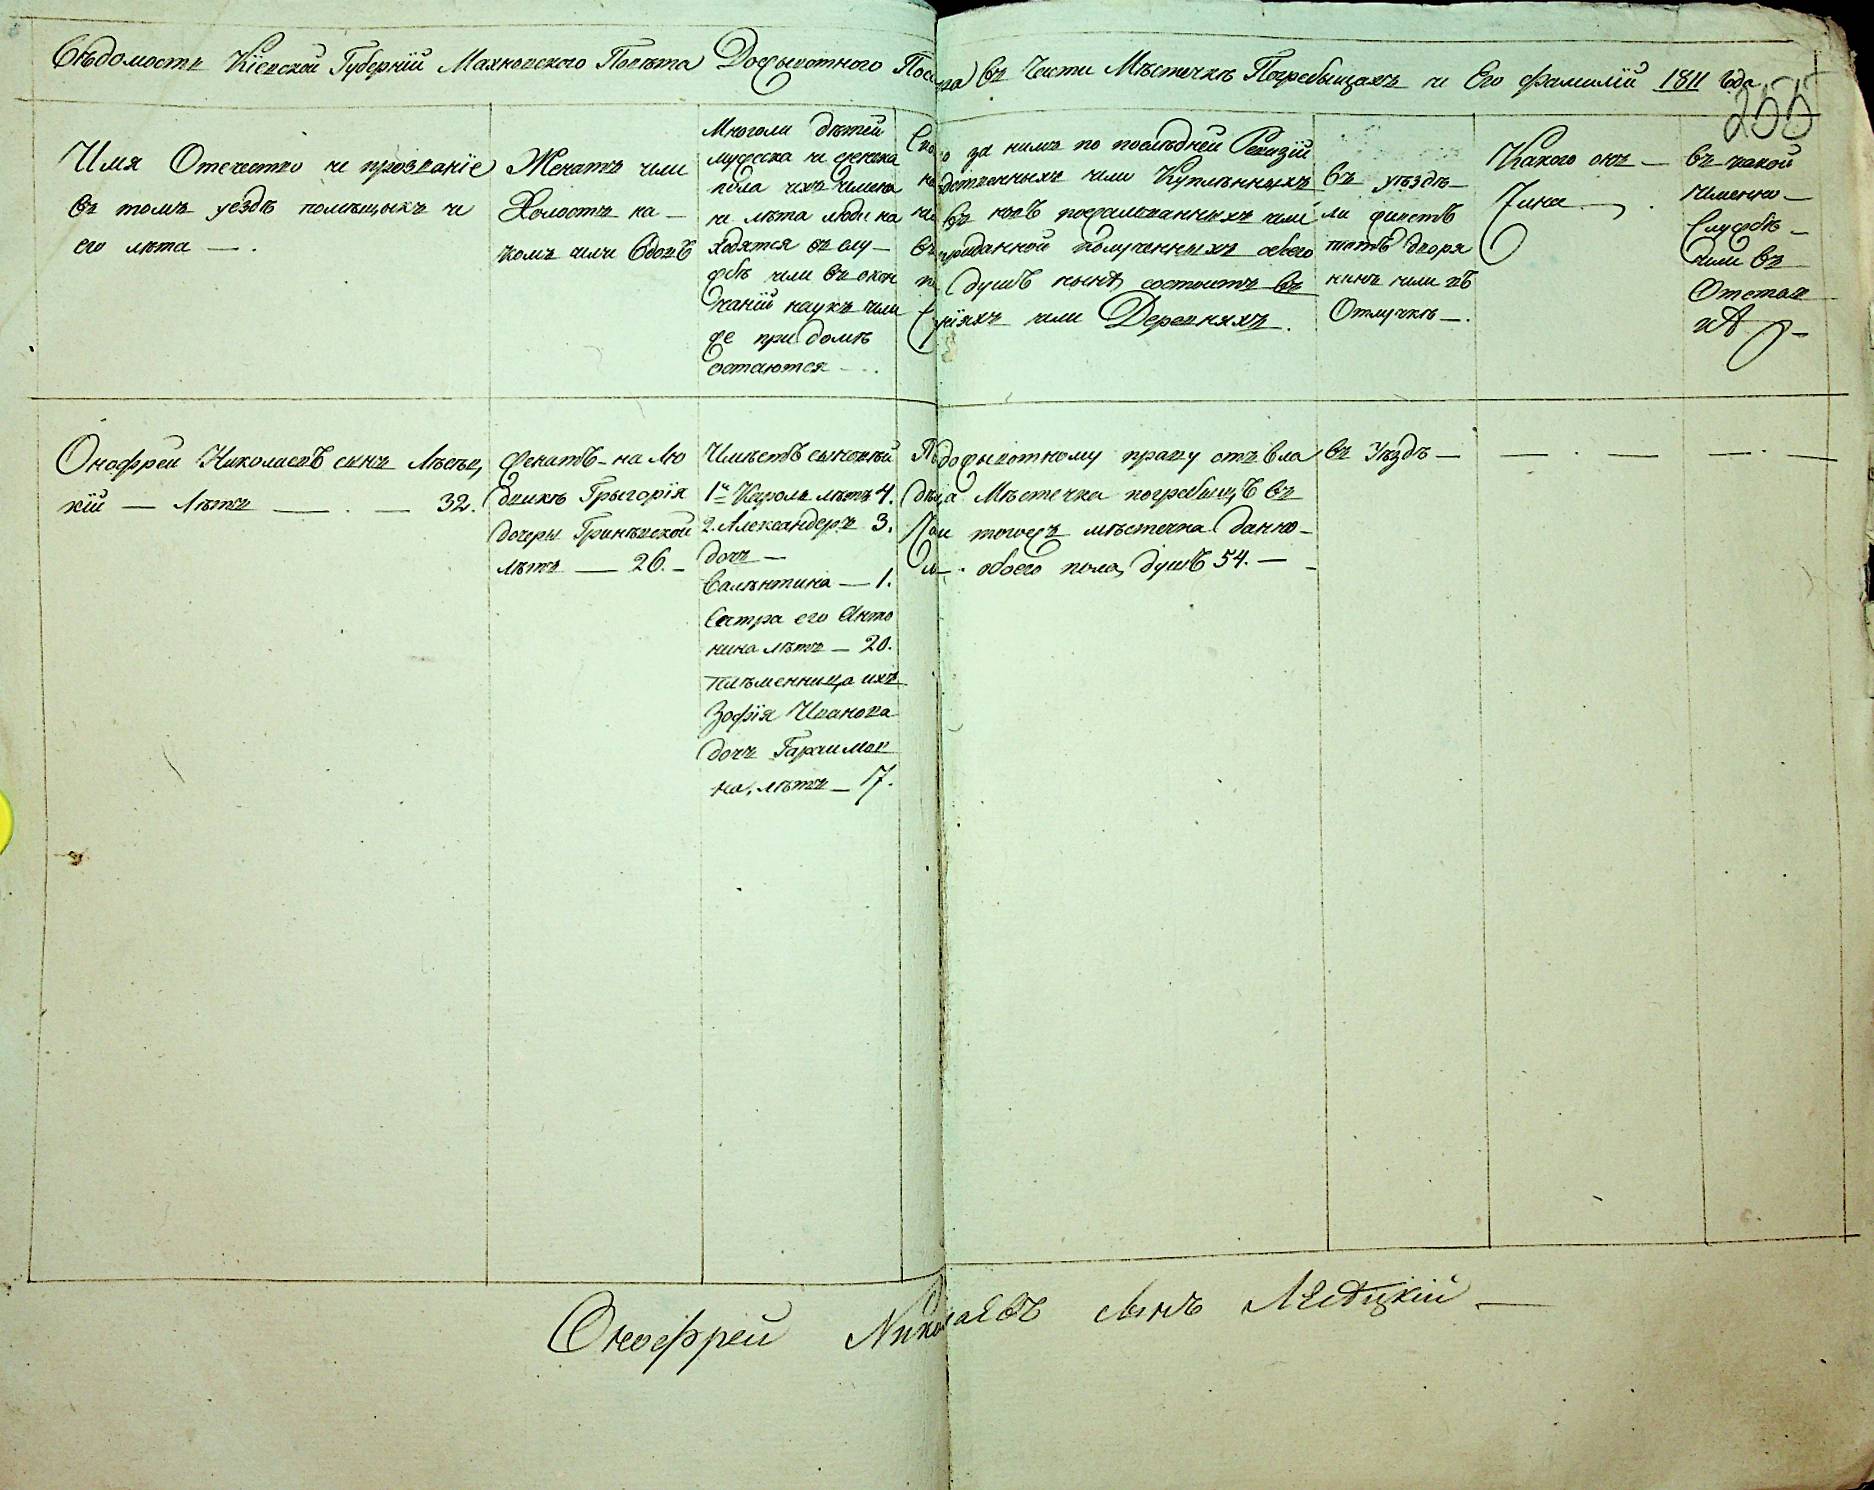 Вѣдомость Кіевской Губерніи Махновского Повѣта Дожывотного Посе са въ Части Мѣстечкѣ Погребыщахъ и Его Фамиліи 1811 Года
255
Имя Отечество и прозваніе
въ томъ уездѣ помѣщыкъ и
его лѣта —.
Женатъ или
Холостъ на —
комъ или вдовъ
Многоли дѣтей
мужеска и женска
пола ихъ имена
и лѣта люди на
ходятся въ слу —
жбѣ или въ окон
чаніи наукъ или
же при домѣ
остаются —
за нимъ по послѣдней Ревизіи
дственныхъ или Купленныхъ
въ
приданной полученныхъ обоего
душъ нынѣ состоитъ въ
іяхъ или Деревняхъ.
въ уѣздѣ —
ли живетъ
тотъ дворя
нинъ или въ
Отлучкѣ —.
Какого онъ —
Чина —.
въ какой
Именно —
Службѣ —
или въ
Отстав
кѣ —
Онофрей Николаевъ сынъ Лѣсец
кій — Лѣтъ — . — 32.
женатъ — на Лю
двикѣ Грыгорія
дочеры Гринѣвской
лѣтъ — 26. —
Имѣетъ сыновей
1й Кароль лѣтъ 4.
2. Александеръ 3.
дочь —
Валѣнтина — 1.
Сестра его Анто
нина лѣтъ — 20.
племенница ихъ
Зофія Иванова
дочь
на, лѣтъ — 17.
По дожывотному праву отъ вла
дѣльца Мѣстечка погребыщъ въ
томъ мѣстечка данно —
м — . обоего пола душъ 54. —
въ Уѣздѣ — — . — — . —
Онофрей Николаевъ сынъ Лѣсецкій —